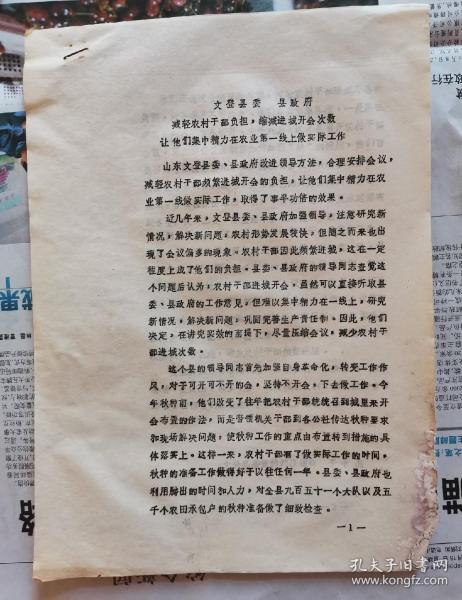 文登县委 县政府
减轻农村干部负担，缩减进城开会次数
让他们集中精力在农业第一线上做实际工作
山东文登县委、县政府改进领导方法，合理安排会议，
减轻农村干部频繁进城开会的负担，让他们集中精力在农
业第一线做实际工作，取得了事半功倍的效果。
近几年来，文登县委、县政府加强领导，注意研究新
情况，解决新问题，农村形势发展较快。但随之而来也出
现了会议偏多的现象。农村干部因此频繁进城，这在一定
程度上成了他们的负担。县委、县政府的领导同志查觉这
个问题后认为：农村干部进城开会，虽然可以直接听取县
委、县政府的工作意见，但难以集中精力在一线上，研究
新情况，解决新问题，巩固完善生产责任制。因此，他们
决定，在讲究实效的前提下，尽量压缩会议，减少农村干
部进城次数。
这个县的领导同志首先加强自身革命化，转变工作作
风，对于可开可不开的会，坚持不开会，下去做工作。今
年秋种前，他们改变了往年把农村干部统统召到城里来开
会布置的作法，而是带领机关干部到各公社传达秋种要求
和现场解决问题，使秋种工作的重点由布置转到措施的具
体落实上。这样一来，农村干部有了做实际工作的时间，
秋种的准备工作做得好于以往任何一年。县委、县政府也
利用腾出的时间和人力，对全县九百五十一个大队以及五
千个农田承包户的秋种准备做了细致检查。
—1—
成果
孔夫子旧书网
www.kongfz.com